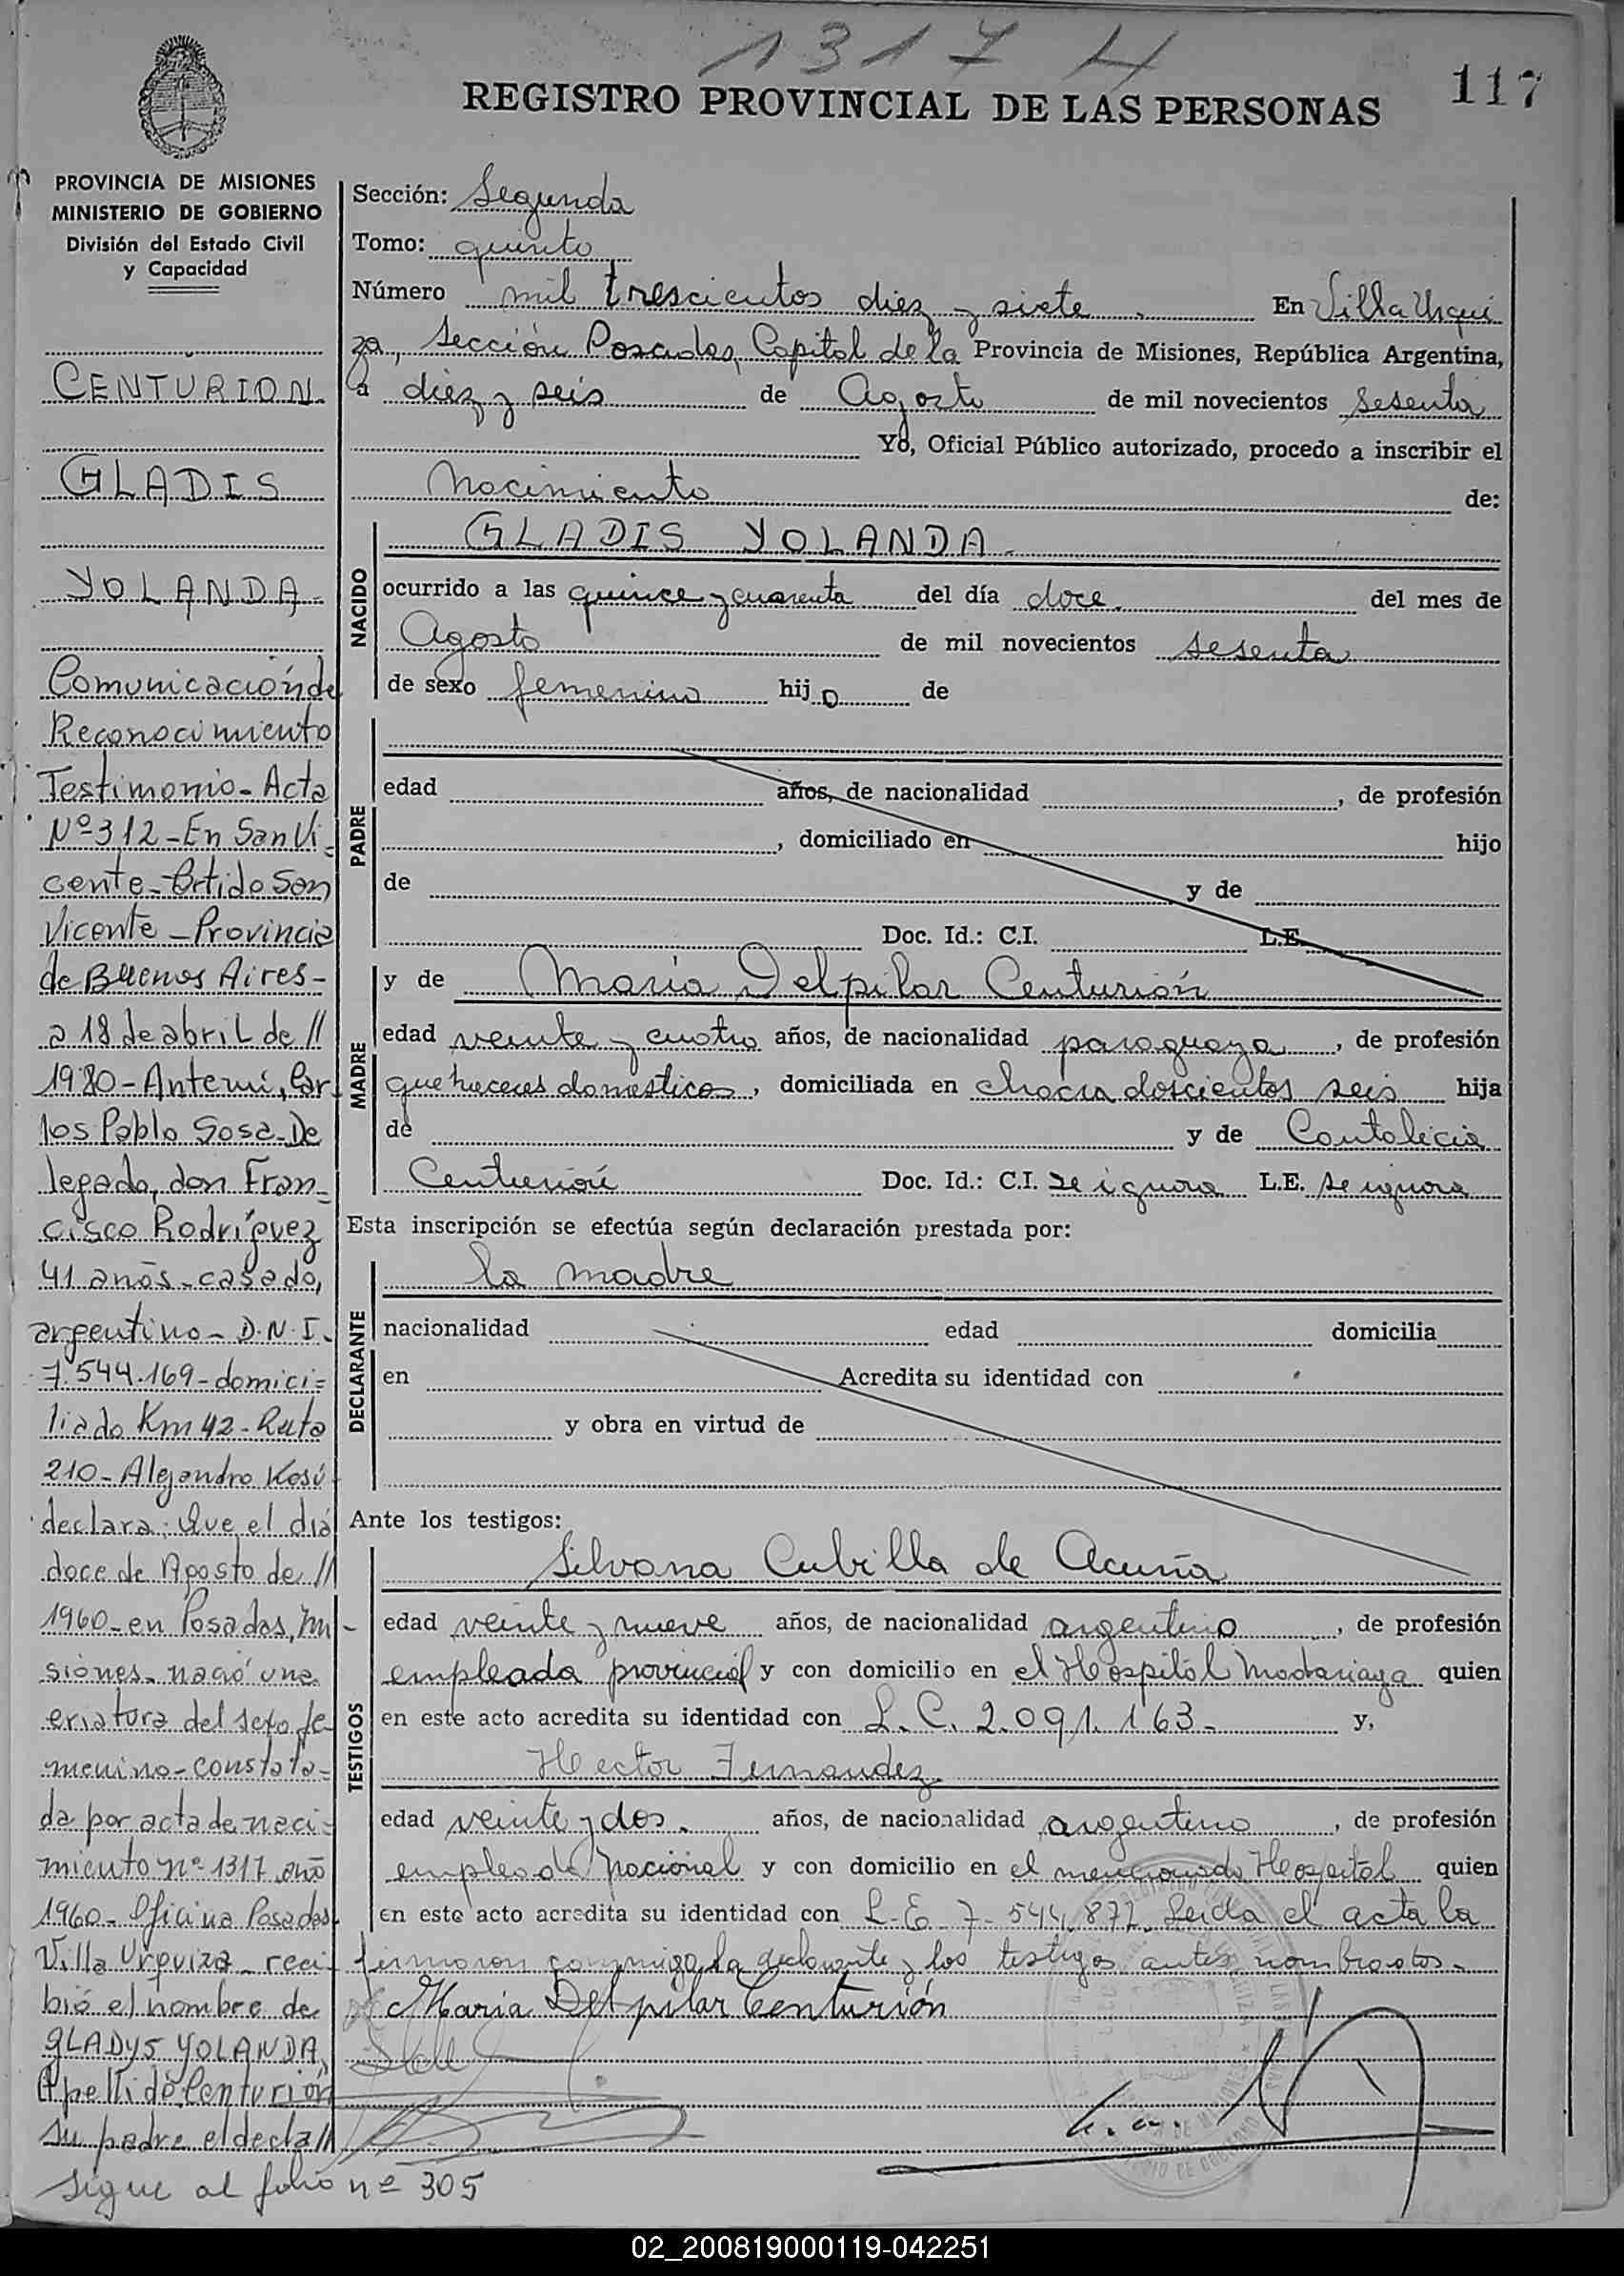 1317 H
REGISTRO PROVINCIAL DE LAS PERSONAS
117
PROVINCIA DE MISIONES
MINISTERIO DE GOBIERNO
División del Estado Civil
y Capacidad
CENTURION
GLADIS
YOLANDA
Comunicación de
Reconocimiento
Testimonio - Acta
Nº 312 - En San Vi-
cente - Ptido San
Vicente - Provincia
de Buenos Aires -
a 18 de abril de //
1980 - Ante mí, Car
los Pablo Sosa - De
legado, don Fran-
cisco Rodríguez
41 años - casado,
argentino - D.N.I.
7.544.169 - domici-
liado Km 42 - Ruta
210 - Alejandro Kosú
declara: Que el día
doce de Agosto de //
1960 - en Posadas, Mi-
siones - nació una
criatura del sexo fe
menino - constata-
da por acta de naci-
miento nº 1317 año
1960 - Oficina Posadas
Villa Urquiza - reci-
bió el nombre de
GLADYS YOLANDA,
Apellido Centurión
su padre el decla //
Sigue al folio nº 305
Sección: Segunda
Tomo: quinto
Número mil trescientos diez y siete. En Villa Urqui
za, Sección Posadas, Capital de la Provincia de Misiones, República Argentina,
a diez y seis de Agosto de mil novecientos sesenta
Yo, Oficial Público autorizado, procedo a inscribir el
Nacimiento de:
NACIDO
GLADIS YOLANDA.
ocurrido a las quince y cuarenta del día doce del mes de
Agosto de mil novecientos sesenta
de sexo femenino hija de
PADRE
edad años, de nacionalidad , de profesión
, domiciliado en hijo
de y de
Doc. Id.: C.I. L.E.
MADRE
y de María Delpilar Centurión
edad veinte y cuatro años, de nacionalidad paraguaya, de profesión
quehaceres domésticos, domiciliada en chacra doscientos seis hija
de y de Cantalicia
Centurión Doc. Id.: C.I. se ignora L.E. se ignora
Esta inscripción se efectúa según declaración prestada por:
DECLARANTE
la madre
nacionalidad edad domicilia
en Acredita su identidad con
y obra en virtud de
Ante los testigos:
TESTIGOS
Silvana Cubilla de Acuña
edad veinte y nueve años, de nacionalidad argentina, de profesión
empleada provincial y con domicilio en el Hospital Madariaga quien
en este acto acredita su identidad con L.C. 2.091.163 - y,
Hector Fernandez
edad veinte y dos. años, de nacionalidad argentino, de profesión
empleado nacional y con domicilio en el mencionado Hospital quien
en este acto acredita su identidad con L-E 7-544.872. Leida el acta la
firmaron conmigo la declarante y los testigos antes nombrados.
Maria Delpilar Centurión
02_200819000119-042251